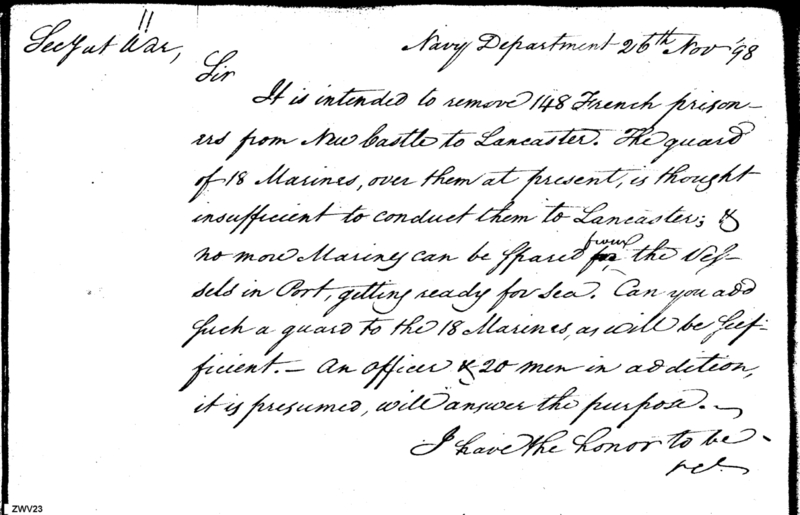 Secy at War,
Navy Department 26th Nov '98
Sir
It is intended to remove 148 French prison-
ers from New Castle to Lancaster. The guard
of 18 Marines, over them at present, is thought
insufficient to conduct them to Lancaster; &
no more Marines can be spared from the Ves-
sels in Port, getting ready for sea. Can you add
such a guard to the 18 Marines, as will be suf-
ficient. - An officer & 20 men in addition,
it is presumed, will answer the purpose. -
I have the honor to be -
&c.
ZWV23